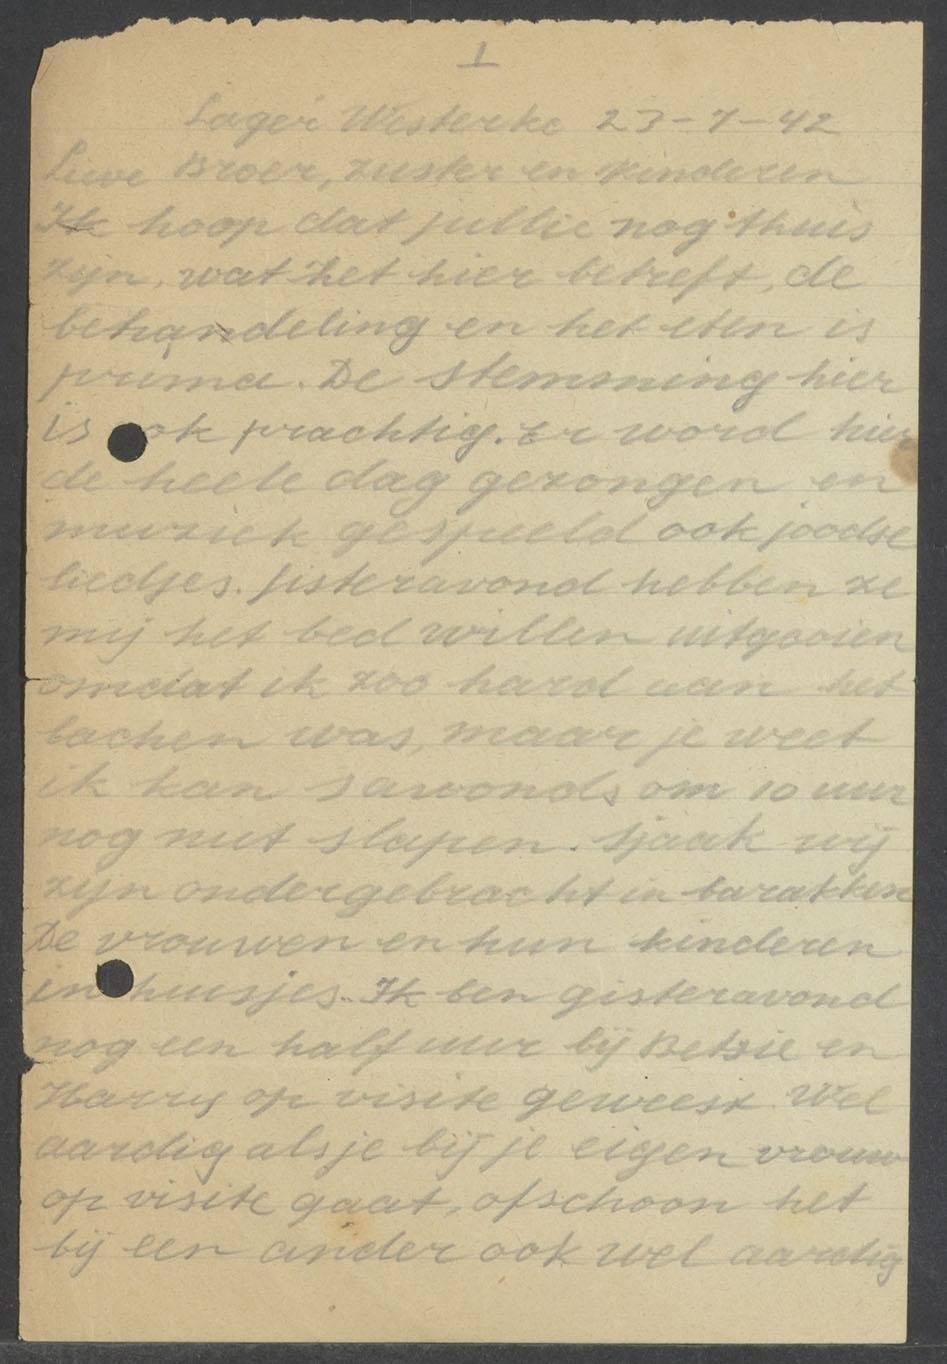 1
Lager Westerke 23-7-42
Lieve Broer, zuster en kinderen
Ik hoop dat jullie nog thuis
zijn, wat het hier betreft, de
behandeling en het eten is
prima. De stemming hier
is ook prachtig. Er word hier
de heele dag gezongen en
muziek gespeeld ook joodse
liedjes. Gisteravond hebben ze
mij het bed willen uitgooien
omdat ik zoo hard aan het
lachen was, maar je weet
ik kan s avonds om 10 uur
nog niet slapen. Sjaak wij
zijn ondergebracht in barakken
De vrouwen en hun kinderen
in huisjes. Ik ben gisteravond
nog een half uur bij Betsie en
Harry op visite geweest. Wel
aardig als je bij je eigen vrouw
op visite gaat, ofschoon het
bij een ander ook wel aardig